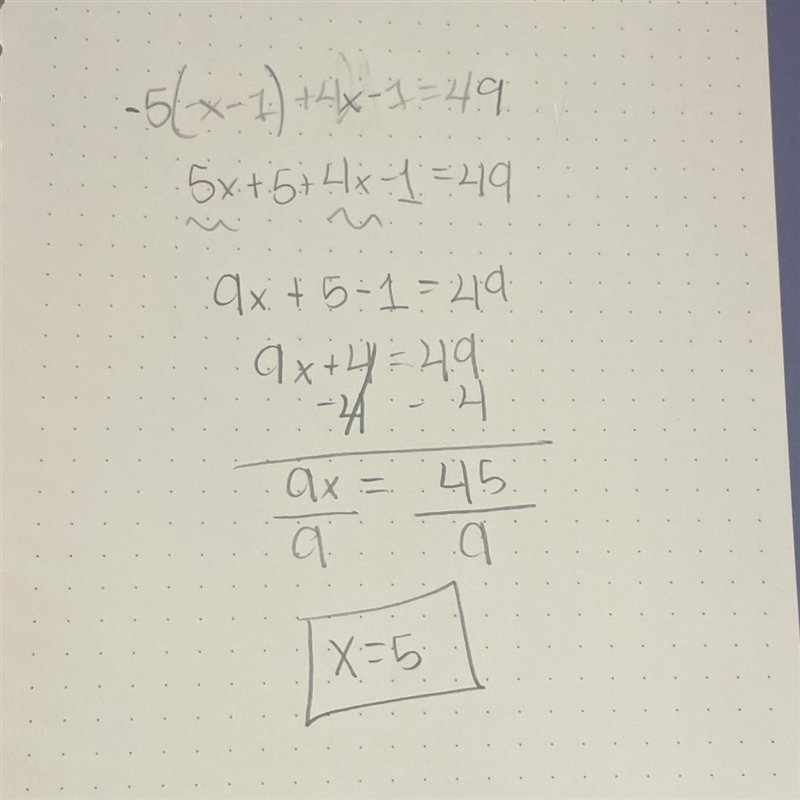 -5(-x-1)+4x-1=49
5x+5+4x-1=49
9x+5-1=49
9x+4=49
-4 -4
9x = 45
9 9
x=5